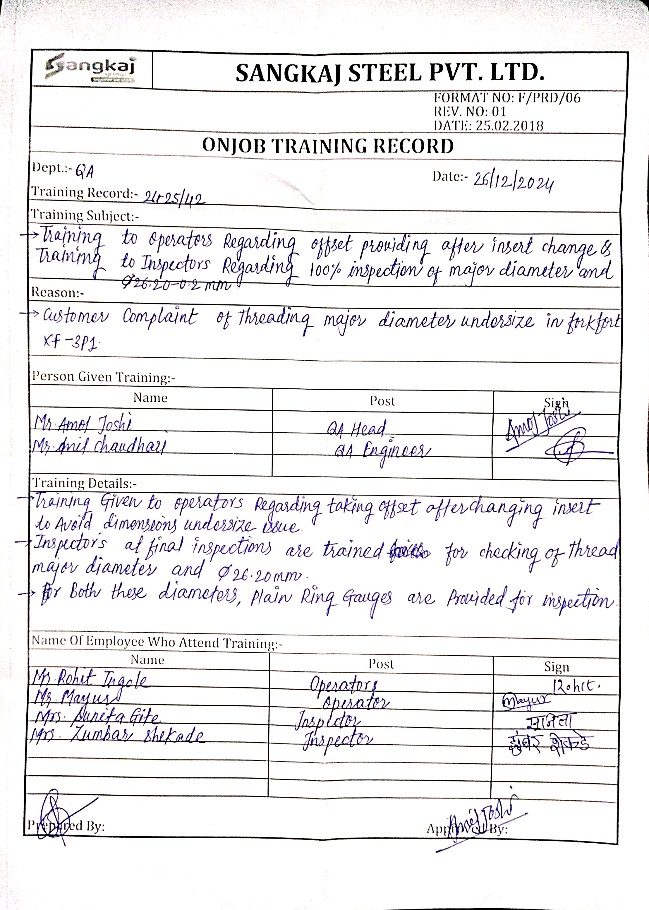 Sangkaj
SANGKAJ STEEL PVT. LTD.
FORMAT NO: F/PRD/06
REV. NO: 01
DATE: 25.02.2018
ONJOB TRAINING RECORD
Dept.:- QA
Date:- 26/12/2024
Training Record:- 2425/42
Training Subject:-
→ Training to operators Regarding offset providing after insert change &
Training to Inspectors Regarding 100% inspection of major diameter and
Ø26.20-0.2 mm
Reason:-
→ Customer Complaint of Threading major diameter undersize in forkfort
XF-3P1.
Person Given Training:-
Name Post Sign
Mr. Amol Joshi QA Head Amol Joshi
Mr. Anil Chaudhari QA Engineer
Training Details:-
→ Training Given to operators Regarding taking offset after changing insert
to Avoid dimensions undersize issue
→ Inspectors at final inspections are trained for checking of Thread
major diameter and Ø26.20mm.
→ For Both these diameters, Plain Ring Gauges are Provided for inspection
Name Of Employee Who Attend Training:-
Name Post Sign
Mr. Rohit Ingole Operators Rohit.
Mr. Mayur Operator Mayur
Mrs. Sunita Gite Inspector
Mrs. Zumbar Shekade Inspector झुंबर शेकडे
Prepared By:
Approved By: Amol Joshi